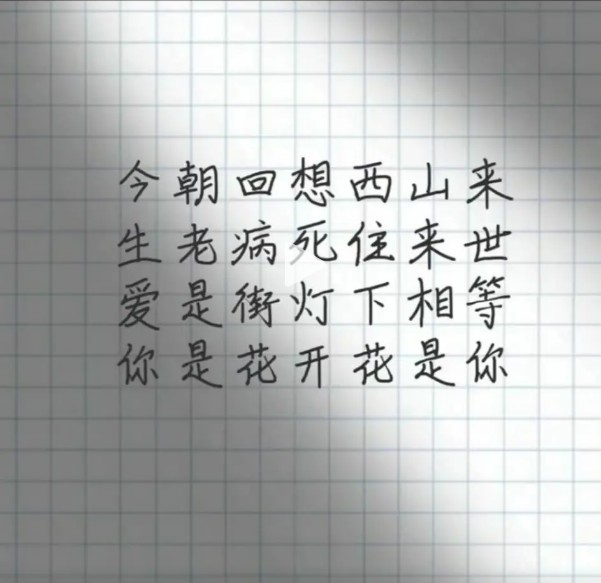 今朝回想西山来
生老病死住来世
爱是街灯下相等
你是花开花是你